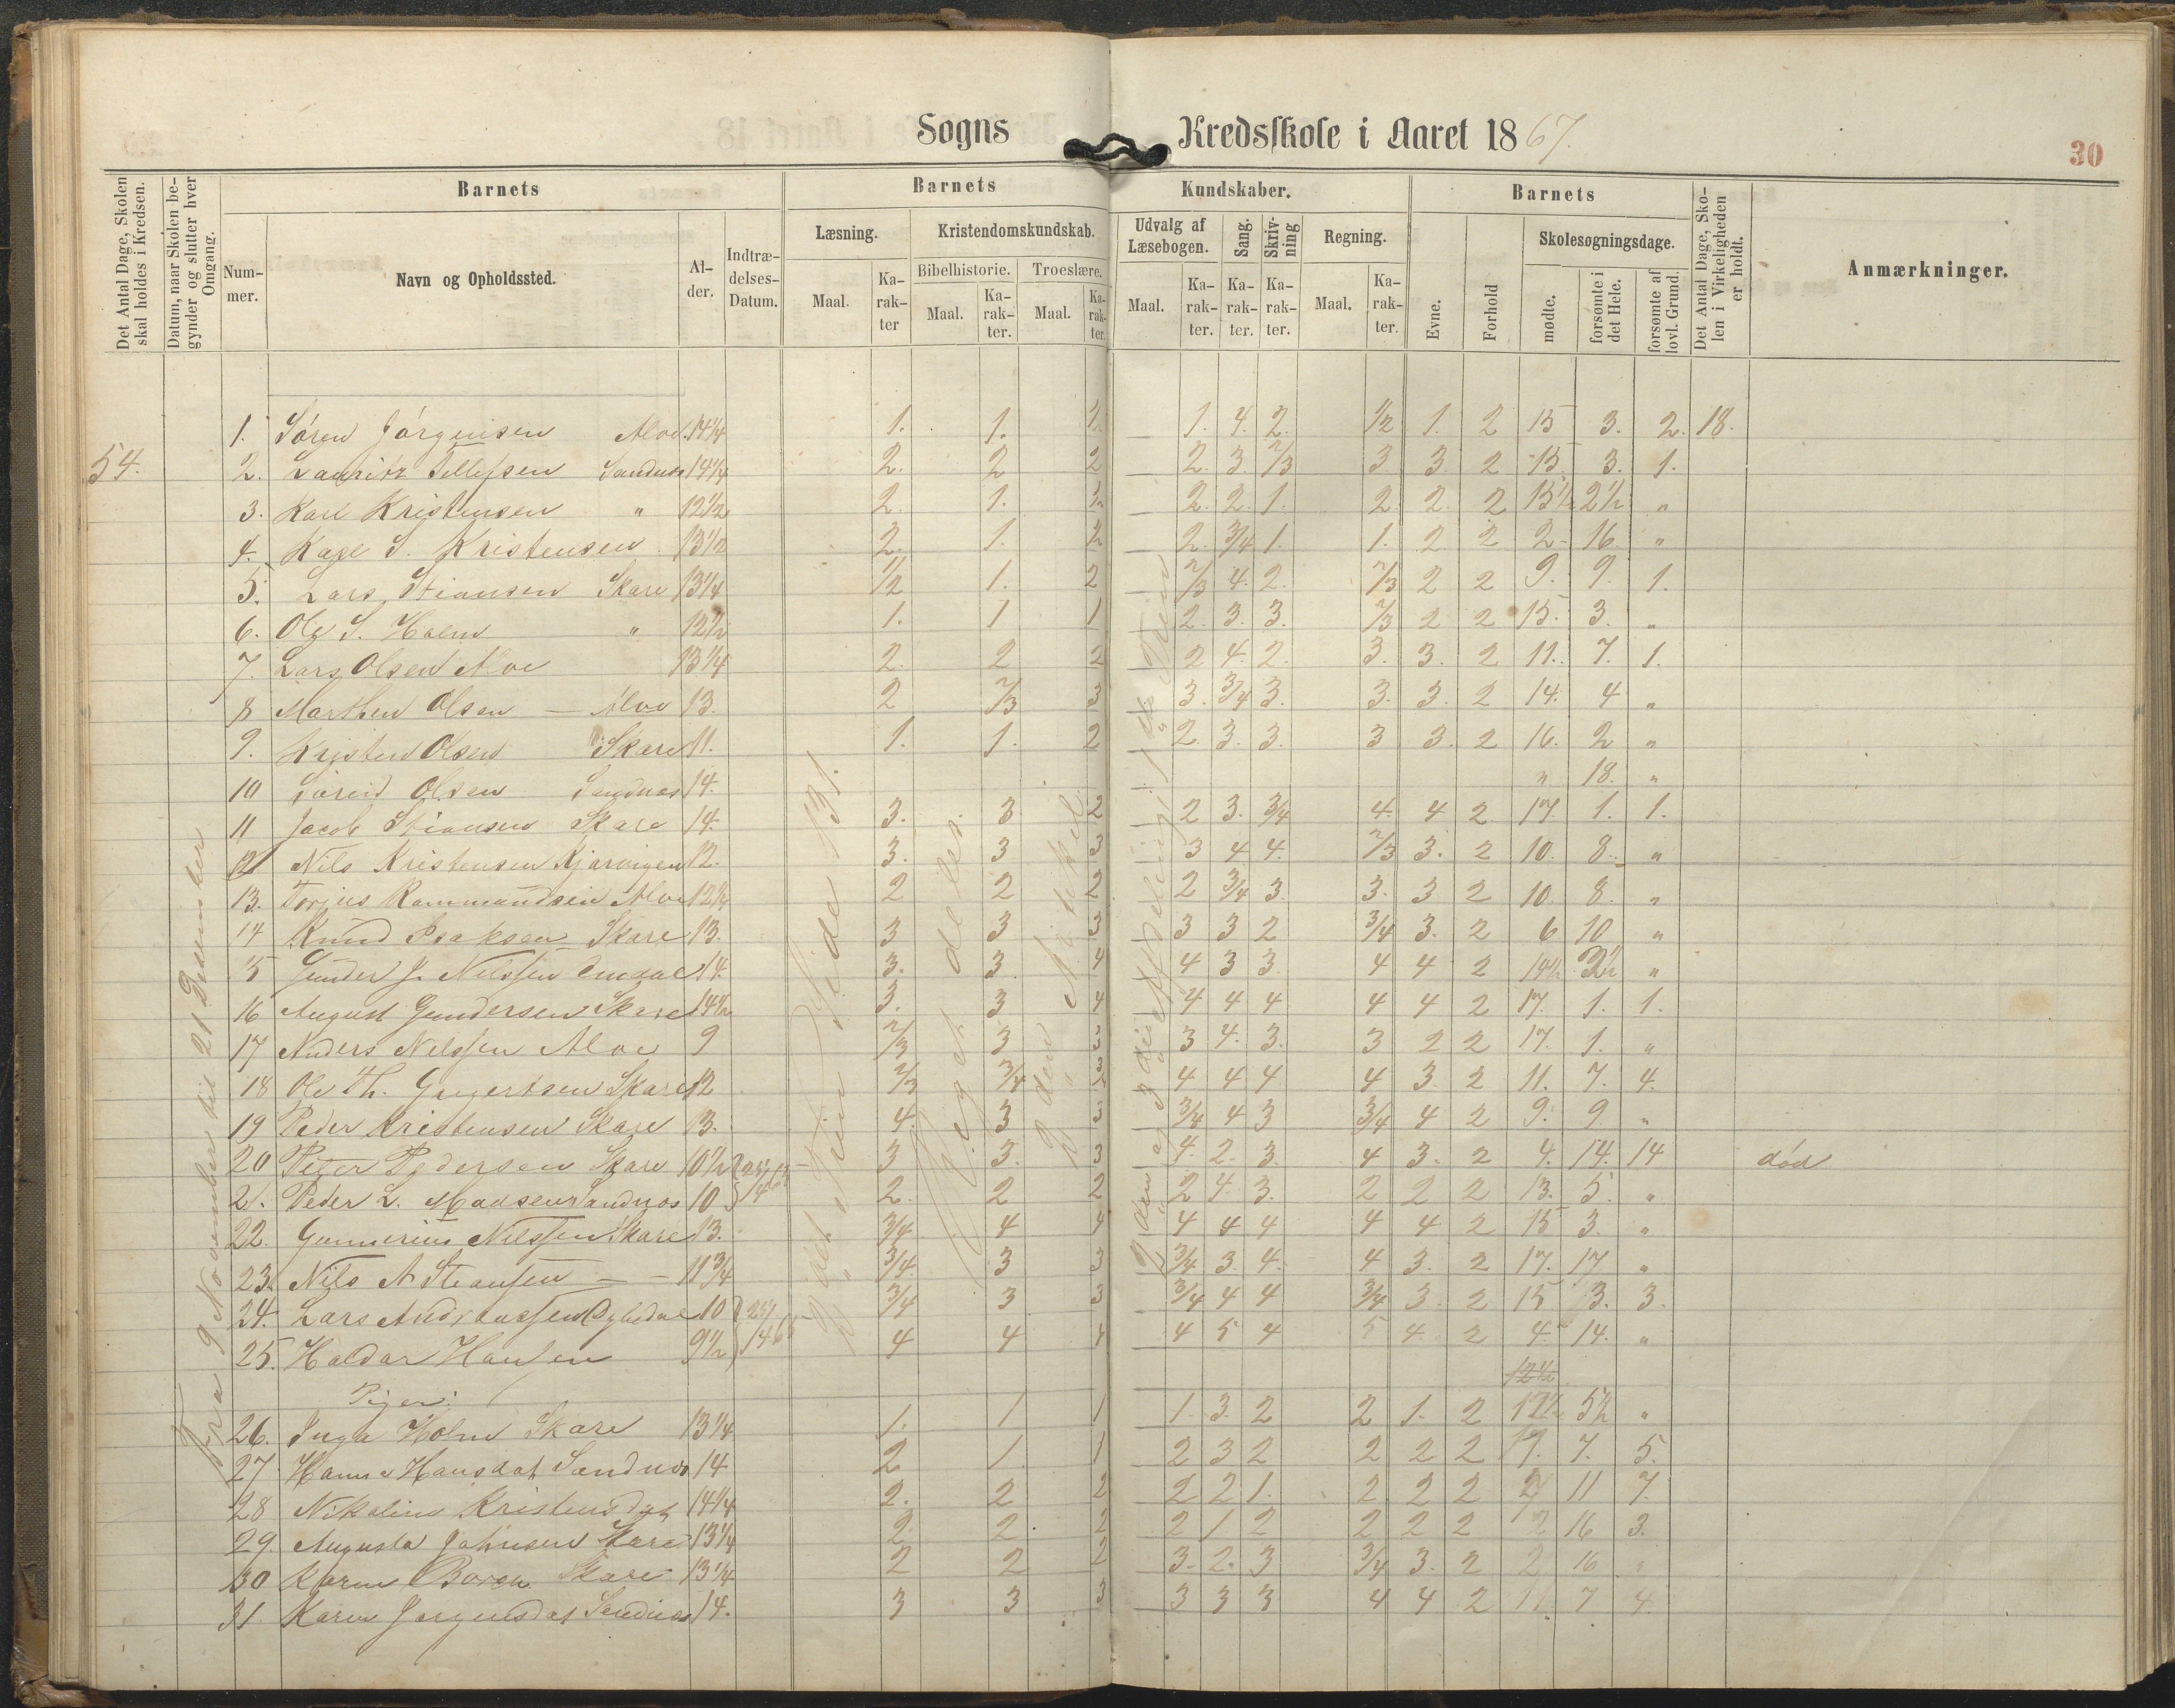 Sogns Kredsskole i Aaret 1867.
30
Det Antal Dage, Skolen skal holdes i Kredsen.
Datum, naar Skolen begynder og slutter hver Omgang.
Barnets
Nummer.
Navn og Opholdssted.
Alder.
Indtrædelses-Datum.
Barnets Kundskaber.
Læsning.
Maal.
Karakter
Kristendomskundskab.
Bibelhistorie.
Maal.
Karakter.
Troeslære.
Maal.
Karakter.
Udvalg af Læsebogen.
Maal.
Karakter.
Sang.
Karakter.
Skrivning
Karakter.
Regning.
Maal.
Karakter.
Barnets
Evne.
Forhold
Skolesøgningsdage.
mødte.
forsømte i det Hele.
forsømte af lovl. Grund.
Det Antal Dage, Skolen i Virkeligheden er holdt.
Anmærkninger.
54.
Fra 9 November til 21 Desember
1. Søren Jörgensen Aloe. 14 1/4 1. 1. 1/2 1. 4. 2. 1/2 1. 2 15 3. 2. 18.
2. Lauritz Tellefsen Sandnæs 14 1/4 2. 2 2 2. 3. 2/3 3 3. 2 15. 3. 1.
3. Karl Kristensen " 12 1/2 2. 1. 1/2 2. 2. 1. 2. 2. 2 15 1/2 2 1/2 "
4. Kage S. Kristensen 13 1/2 2. 1. 1/2 2. 3/4 1. 1. 2 2 2 16 "
5. Lars Stiansen Skare 13 1/4 1/2 1. 2 2/3 4. 2. 2/3 2 2 9. 9. 1.
6. Ole S. Holm " 12 1/2 1. 1 1 2. 3. 3. 2/3 2 2 15. 3. "
7. Lars Olsen Aloe 13 1/4 2. 2 2 2 4. 2. 3. 3. 2 11. 7. 1.
8 Marthen Olsen — Aloe 13. 2 2/3 3 3. 3/4 3. 3. 3. 2 14. 4 "
9. Kristen Olsen Skare 11. 1. 1. 2 2. 3. 3. 3 3. 2 16. 2 "
10 Olsen Sandnæs 14. " 18. "
11 Jacob Stiansen Skare 14. 3. 3 2 2 3. 3/4 4. 4 2 17. 1. 1.
12 Nils Kristensen Kjarvigen 12. 3. 3 3 3 4 4. 2/3 3. 2 10. 8. "
13. Torjus Rommundsen Aloe 12 1/2 2 2 2 2 3/4 3 3. 3 2 10. 8. "
14 Knud Isaksen Skare 13. 3 3 3 3 3 2 3/4 3. 2 6 10 "
15 Gunder J. Nilssen 14. 3. 3. 4 4 3 3. 4 4 2 14 1/2 3 1/2 "
16 August Gundersen Skare 14 1/2 3. 3 4 4 4 4 4 4 2 17. 1. 1.
17 Anders Nelssen Aloe 9 2/3 3 3 3 4. 3. 3 2 2 17. 1. "
18 Ole Th. Gregertsen Skare 12 2/3 3/4 3 4 4 4 4 3. 2 11. 7. 4.
19 Peder Kristensen Skare 13. 4. 3 3 3/4 4 3 3/4 4 2 9. 9. "
20 Peter Pedersen Skare 10 1/2 3 3. 3 4. 2. 3. 4 3. 2 4. 14. 14 død
21. Peder L. Madsen Sandnæs 10 2. 2 2 2 4. 3. 2 2 2 13. 5. "
22. Gunnerius Nilssen Skare 13. 3/4 4 4 4 4 4 4 4 2 15 3. "
23. Nils A Stiansen — — 11 3/4 3/4. 3 3 3/4 3. 4. 4 3. 2 17. 17. "
24. Lars 10 3/4 3 3 3/4 4 4 3/4 3. 2 15 3. 3.
25. Haldor Hansen 9 1/2 4 4 4 4 5 4 5 4. 2 4. 14. "
Piger:
26. Inga Holm Skare 13 1/4 1. 1 1 1. 3. 2 2 1. 2 12 1/2 5 1/2 "
27 Hanne Hansdat. Sandnæs 14 2 1. 1 2 3 2 2 2 2 7. 5.
28 Nikoline Kristensdat 14 1/4 2. 2 2 2 2 1. 2. 2 2 11 7.
29. Augusta Johnsen Skare 13 1/4 2. 2. 2 2 1 2 2 2 2 2 16 3.
30 Karen Boren Skare 13 1/4 2 2 2 3. 2. 3 3/4 3. 2 2 16 "
31. Karen Jørgensdat Sandnæs 14. 3 3 3 3 3 3 4 4 2 11. 7 4.